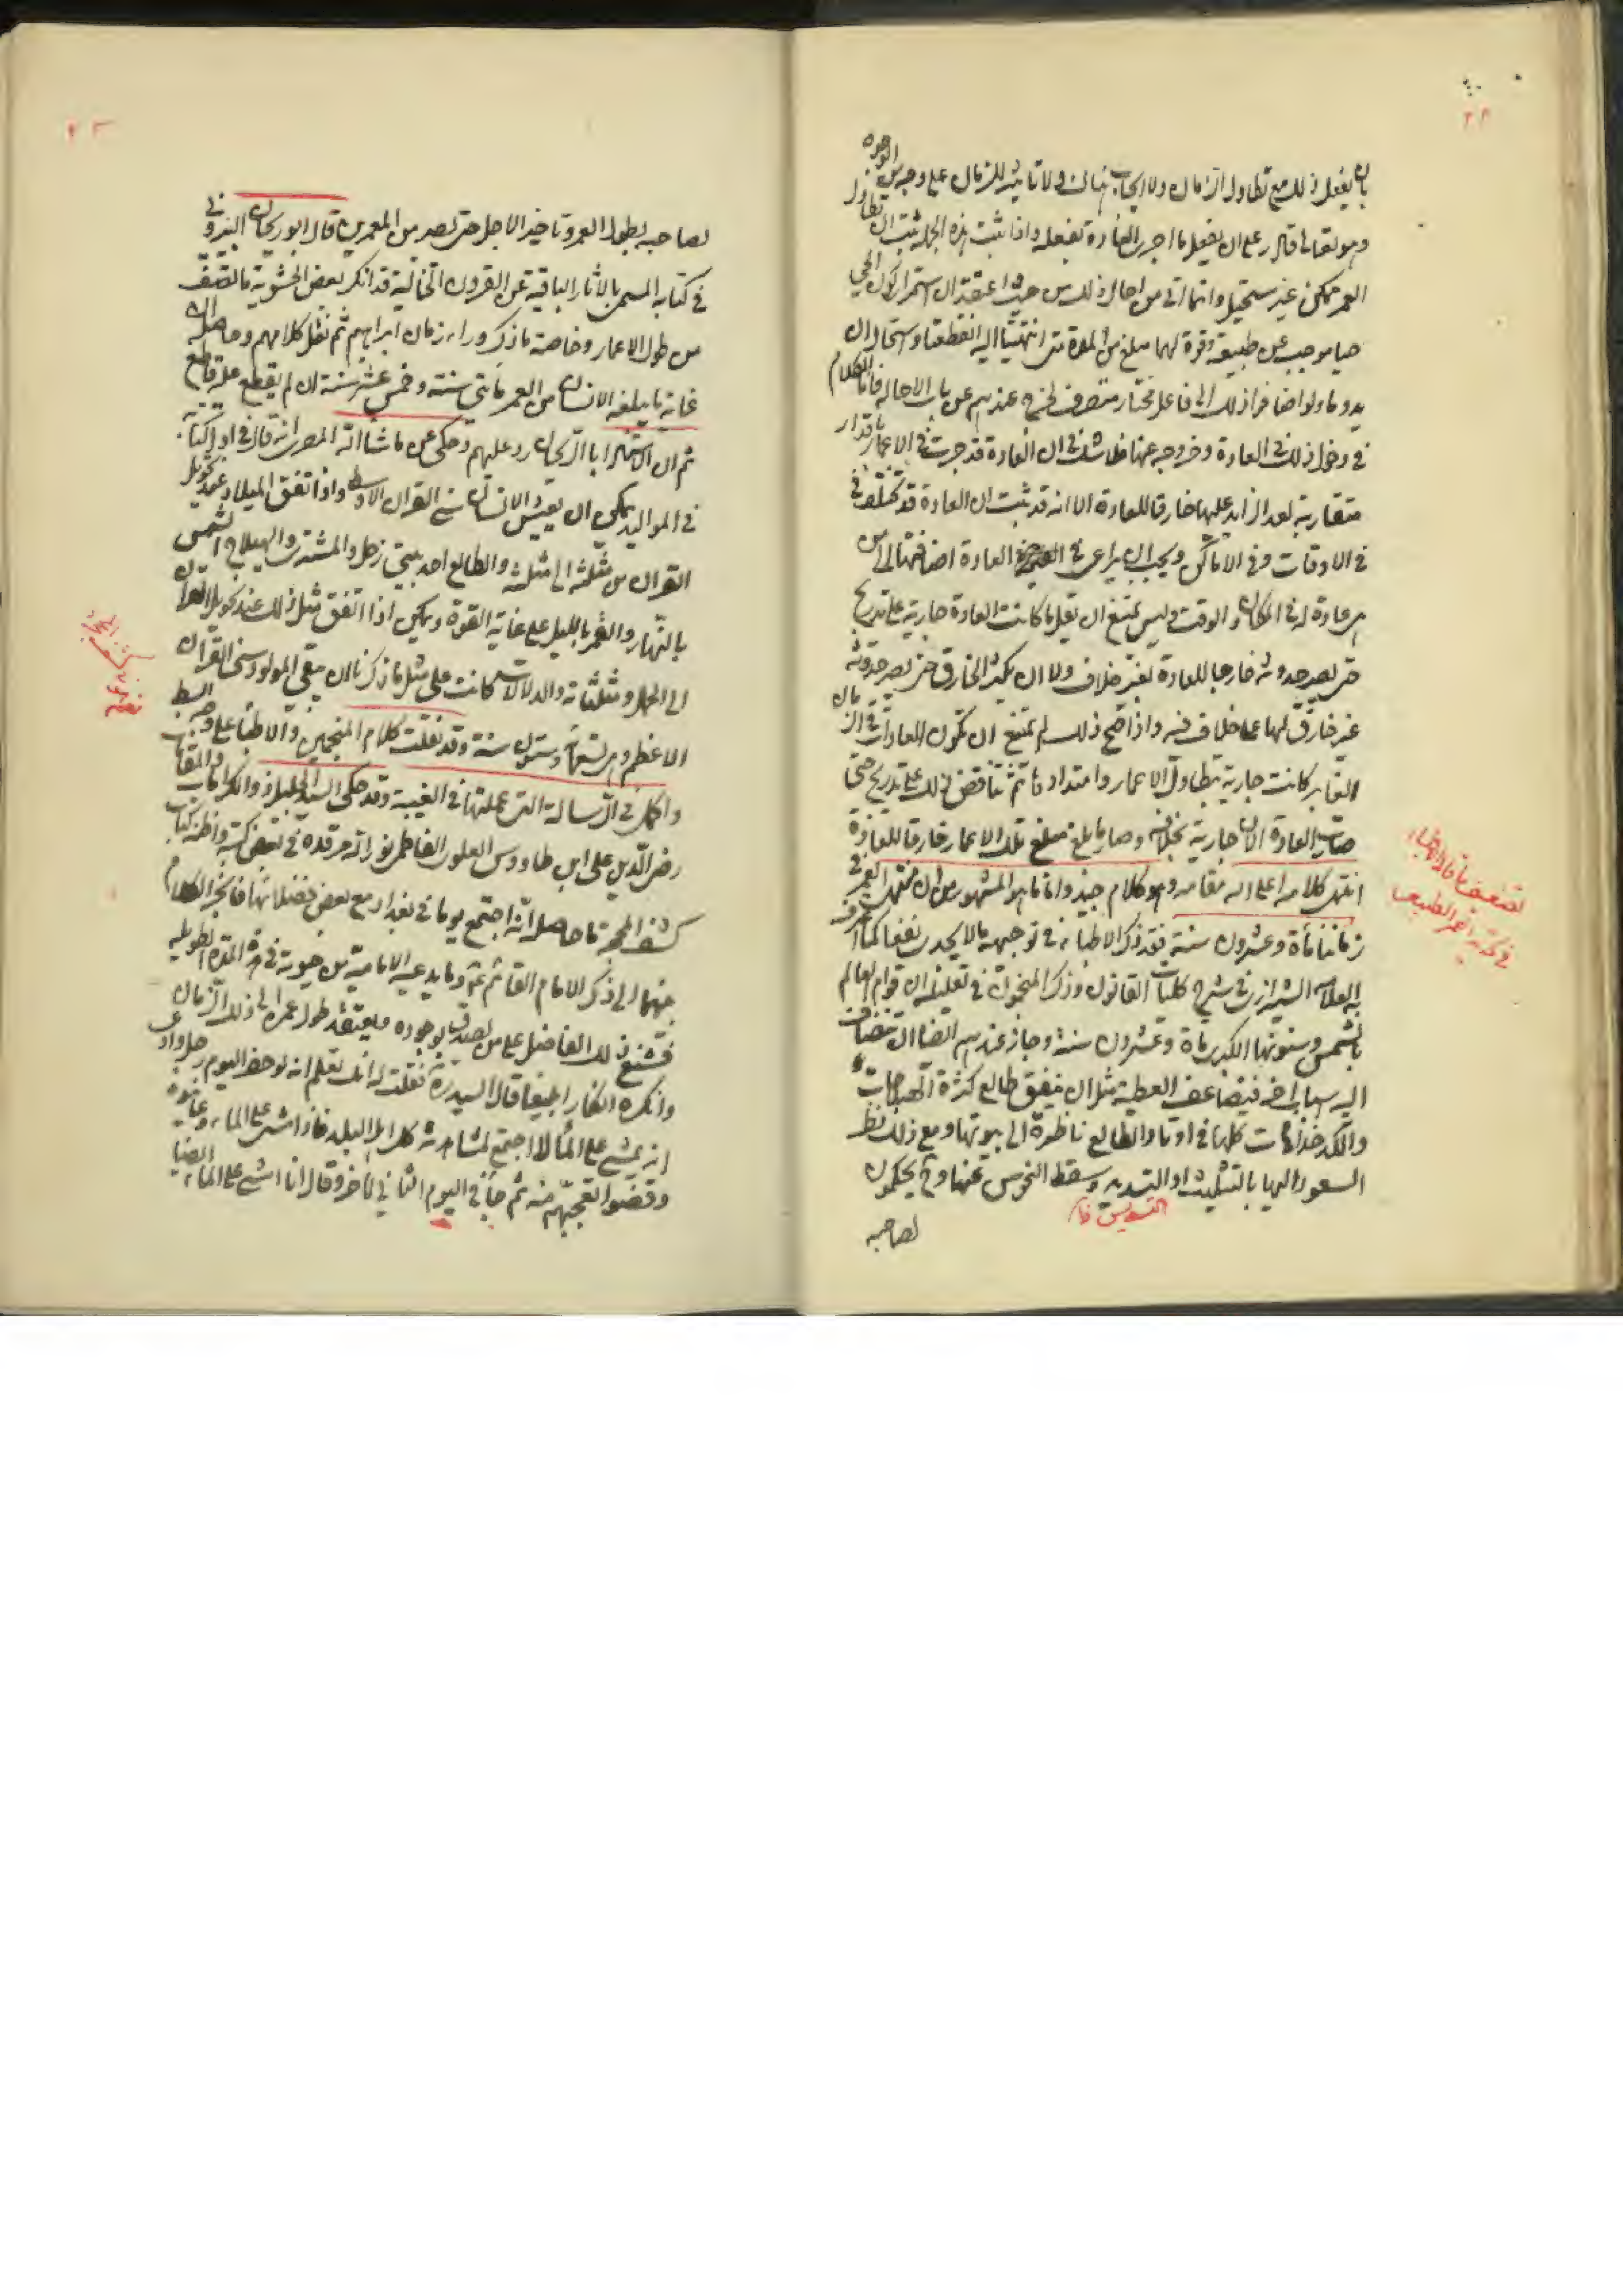 ٢٢
بان يفعل ذلك مع تطاول الزمان ولا ايجاب هناك ولا تاثير للزمان على وجه من الوجوه
وهو تعالى قادر على ان يفعل ما اجرى العادة بفعله واذا ثبت هذه الجملة ثبت ان تطاول
العمر ممكن غير مستحيل وانما اتى من احال ذلك من حيث اعتقد ان استمرار كون الحي
حيا موجب عن طبيعة وقوة لهما مبلغ من المادة متى انتهيتا اليه انقطعتا واستحال ان
يدوما ولو اضافوا ذلك الى فاعل مختار متصرف لخرج عندهم عن باب الاحالة فاما الكلام
في دخول ذلك في العادة وخروجه عنها فلا شك في ان العادة قد جرت في الاعمار باقدار
متقاربة يعد الزايد عليها خارقا للعادة الا انه قد ثبت ان العادة قد تختلف في
في الاوقات وفي الاماكن ويجب ان يراعى في العادة اضافتها الى من
هي عادة له في المكان والوقت وليس يمتنع ان يقل ما كانت العادة جارية على تدريج
حتى يصير حدوثه خارجا للعادة بغير خلاف ولا ان يكثر الخارق حتى يصير حدوثه
غير خارق لها على خلاف فيه واذا صح ذلك لم يمتنع ان تكون العادات في الزمان
الغابر كانت جارية بتطاول الاعمار وامتدادها ثم تناقص ذلك على تدريج حتى
صارت العادة الان جارية بخلافه وصار ما بلغ مبلغ تلك الاعمار خارقا للعادة
انتهى كلامه اعلى الله مقامه وهو كلام جيد واما ما هو المشهور من ان منتهى العمر في
زماننا مأة وعشرون سنة فقد ذكر الاطباء في توجيهه ما لا يجدي نفعا كما اعترف
به العلامة الشيرازي في شرح كليات القانون وذكر المنجمون في تعليله ان قوام العالم
بالشمس وسنونها الكبرى مأة وعشرون سنة وجاز عندهم ايضا ان ينضاف
اليه اسباب اخر فيتضاعف العطية مثل ان يتفق طالع كثرة الهيلاجات
والكدخذاهات كلها في اوتاد الطالع ناظرة الى بيوتها ومع ذلك نظر
السعود اليها بالتثليث او التسديس وسقط النحوس عنها وح يحكمون
التسديس
لصاحبه
تضعيف ما قاله الاطباء
في العمر الطبيعي
٢٣
لصاحبه بطول العمر وتاخير الاجل حتى يصير من المعمرين قال ابو ريحان البيروني
في كتابه المسمى بالاثار الباقية عن القرون الخالية قد انكر بعض الحشوية ما وصفت
من طول الاعمار وخاصة ما ذكر وراء زمان ابراهيم ثم نقل كلامهم وحاصله ان
غاية ما يبلغه الانسان من العمر مأتي سنة وخمس عشر سنة ان لم يقطع عليه قاطع
ثم ان الاستاد ابا الريحان رد عليهم وحكى عن ما شاء الله المصري انه قال في اول كتابه
في المواليد يمكن ان يعيش الانسان سني القران الاوسط واذا اتفق الميلاد عند تحويل
القران من مثلثة الى مثلثة والطالع احد بيتي زحل والمشتري والهيلاج الشمس
بالنهار والقمر بالليل على غاية القوة ويمكن اذا اتفق مثل ذلك عند تحويل القران
الى الحمل ومثلثاته والدلالات كانت على مثل ما ذكرنا ان يبقى المولود سني القران
الاعظم وهي تسعمأة وستون سنة وقد نقلت كلام المنجمين والاطباء على وجه ابسط
واكمل في الرسالة التي عملتها في الغيبة وقد حكى السيد الجليل ذو الكرامات والمقامات
رضي الدين علي ابن طاووس العلوي الفاطمي نور الله مرقده في بعض كتبه واظنه كتاب
كشف المحجة ما حاصله انه اجتمع يوما في بغداد مع بعض فضلائها فانجر الكلام
بينهما الى ذكر الامام القائم وما يدعيه الامامية من حيوته في هذه المدة الطويلة
فشنع ذلك الفاضل على من يصدق بوجوده ويعتقد طول عمره الى ذلك الزمان
وانكره انكارا بليغا قال السيد ره فقلت له انك تعلم انه لو حضر اليوم رجل وادعى
انه يمشي على الماء لاجتمع لمشاهدته كل اهل البلد فاذا مشى على الماء وعاينوه
وقضوا تعجبهم منه ثم جاء في اليوم الثاني اخر وقال انا امشي على الماء ايضا